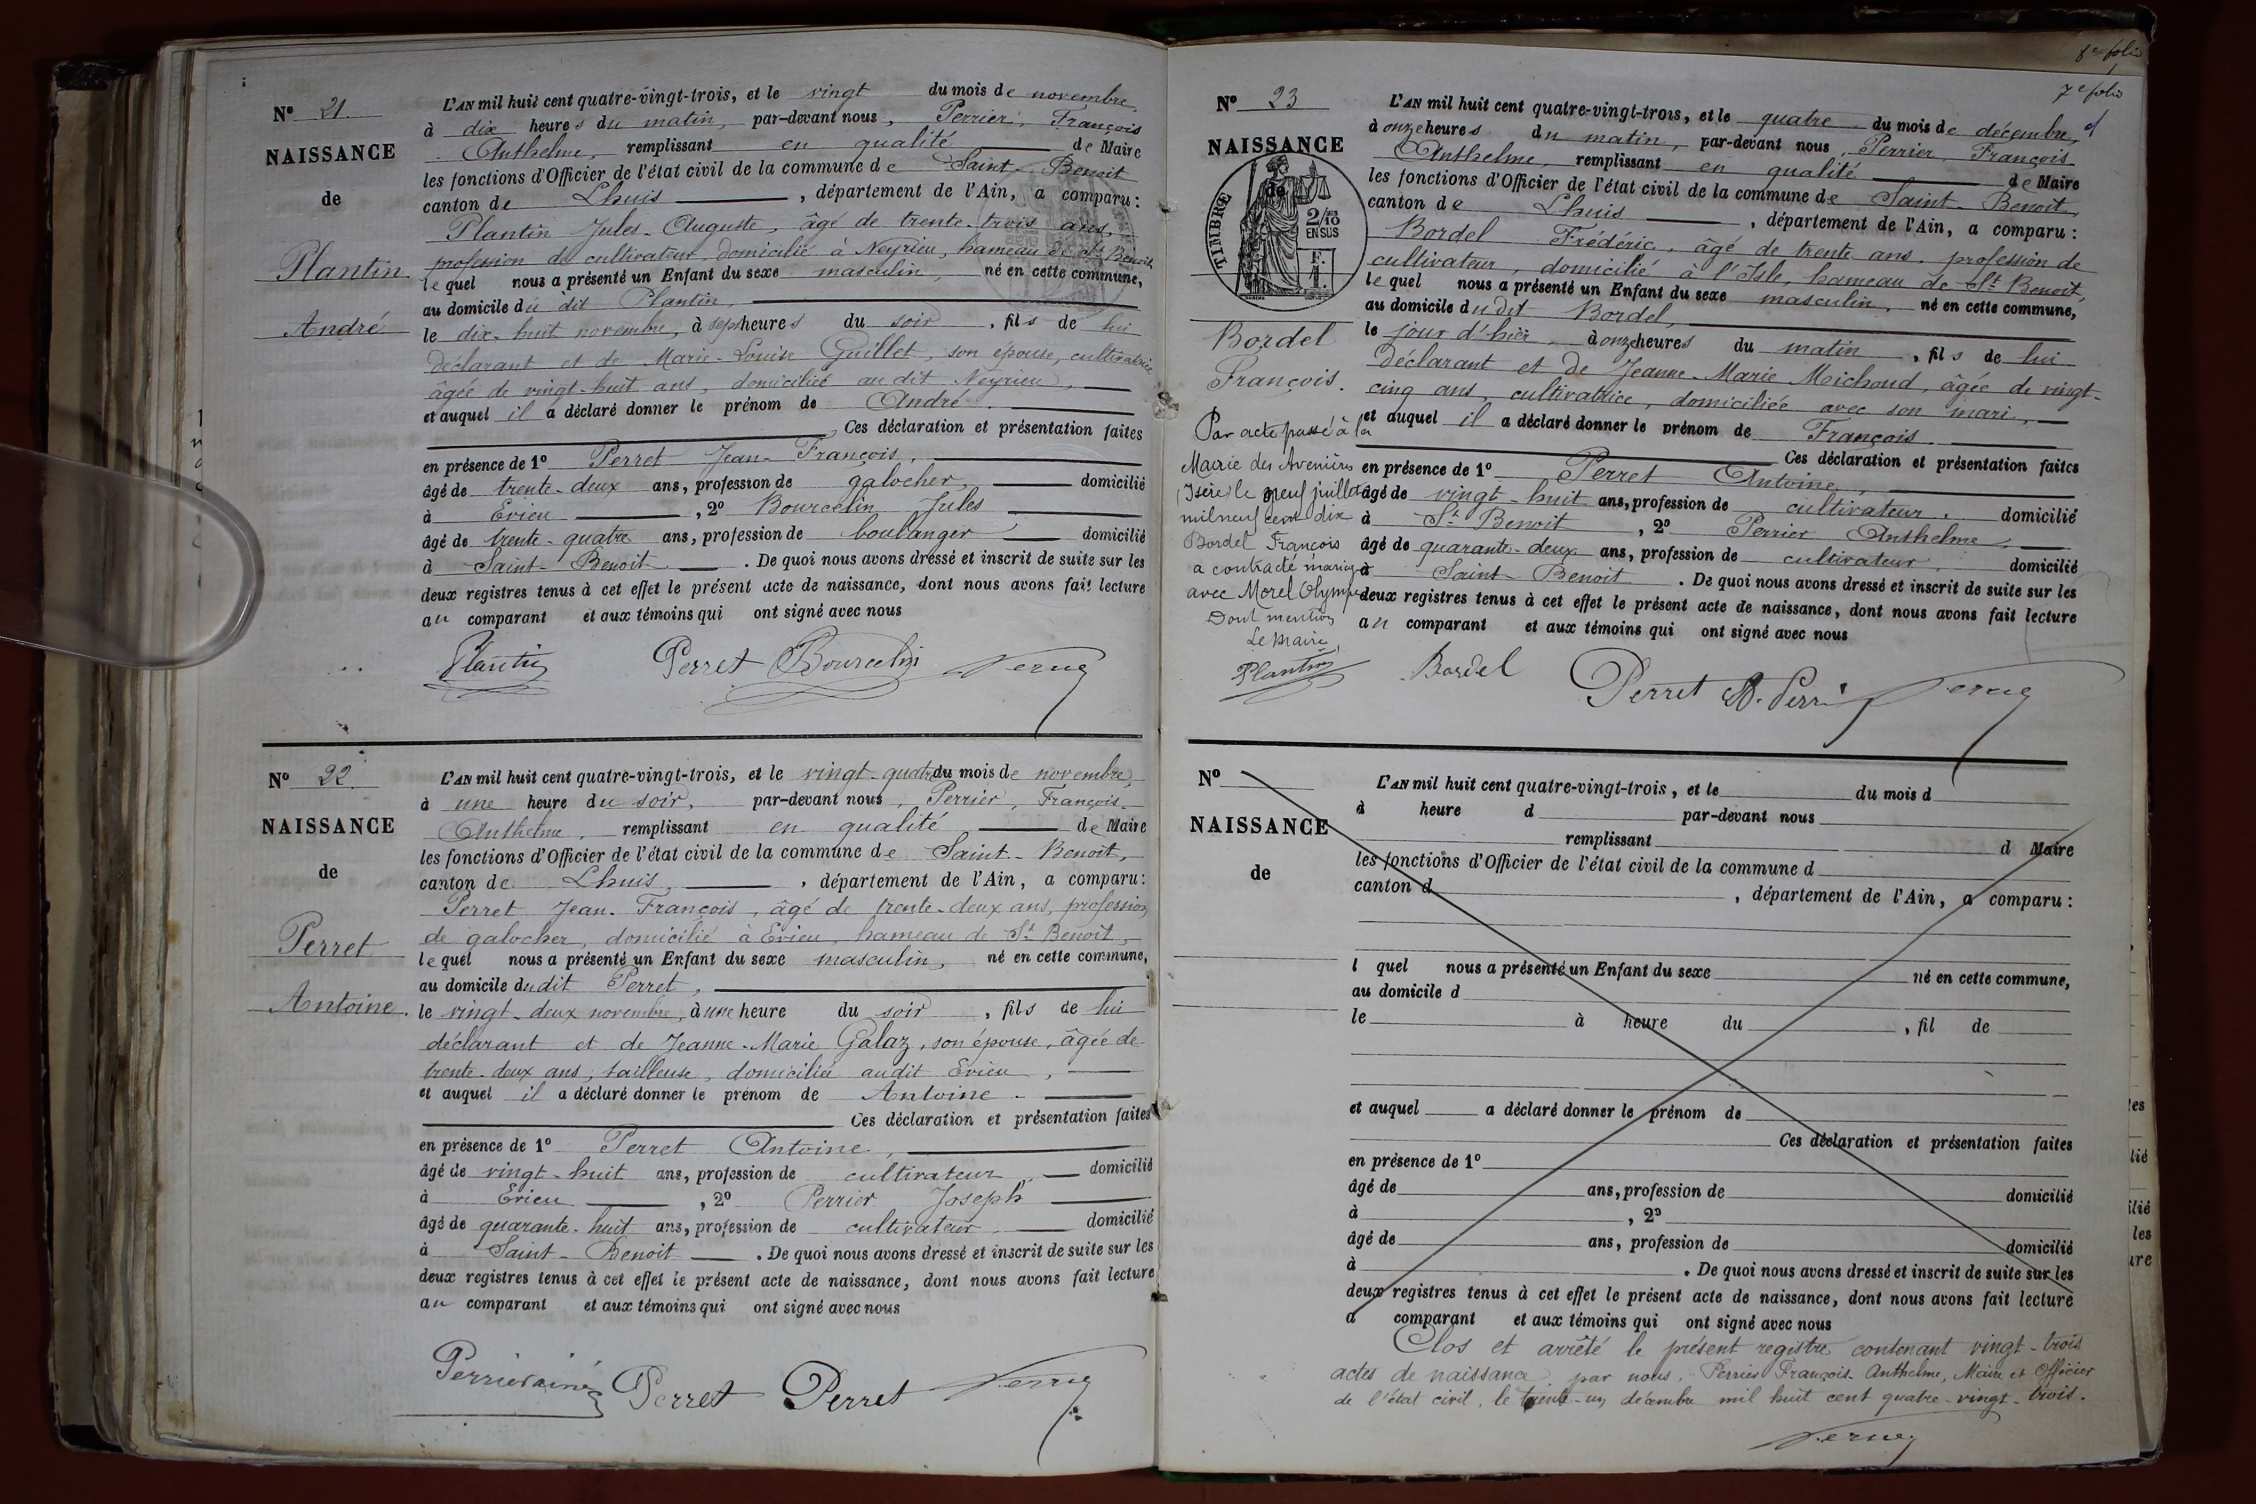 Nº 21.
NAISSANCE
de
Plantin
André
L'AN mil huit cent quatre-vingt-trois, et le vingt du mois de novembre,
à dix heures du matin, par-devant nous, Perrier, François
Anthelme, remplissant en qualité de Maire
les fonctions d'Officier de l'état civil de la commune de Saint-Benoit
canton de Lhuis, département de l'Ain, a comparu:
Plantin Jules-Auguste, âgé de trente-trois ans,
profession de cultivateur, domicilié à Neyrieu, hameau de St Benoit
lequel nous a présenté un Enfant du sexe masculin, né en cette commune,
au domicile du dit Plantin,
le dix-huit novembre, à sept heures du soir, fils de lui
déclarant et de Marie-Louise Guillet son épouse, cultivatrice
âgée de vingt-huit ans, domiciliée au dit Neyrieu,
et auquel il a déclaré donner le prénom de André.
Ces déclaration et présentation faites
en présence de 1º Perret Jean-François,
âgé de trente-deux ans, profession de galocher, domicilié
à Evieu, 2º Bourcelin Jules
âgé de trente-quatre ans, profession de boulanger domicilié
à Saint-Benoit. De quoi nous avons dressé et inscrit de suite sur les
deux registres tenus à cet effet le présent acte de naissance, dont nous avons fait lecture
au comparant et aux témoins qui ont signé avec nous
Plantin Perret Bourcelin
Nº 22.
NAISSANCE
de
Perret
Antoine.
L'AN mil huit cent quatre-vingt-trois, et le vingt-quatre du mois de novembre,
à une heure du soir, par-devant nous, Perrier, François-
Anthelme, remplissant en qualité de Maire
les fonctions d'Officier de l'état civil de la commune de Saint-Benoit,
canton de Lhuis, département de l'Ain, a comparu:
Perret Jean-François, âgé de trente-deux ans, profession
de galocher, domicilié à Evieu, hameau de St Benoit,
lequel nous a présenté un Enfant du sexe masculin, né en cette commune,
au domicile dudit Perret,
le vingt-deux novembre, à une heure du soir, fils de lui
déclarant et de Jeanne-Marie Galaz, son épouse, âgée de
trente-deux ans, tailleuse, domiciliée audit Evieu,
et auquel il a déclaré donner le prénom de Antoine.
Ces déclaration et présentation faites
en présence de 1º Perret Antoine,
âgé de vingt-huit ans, profession de cultivateur, domicilié
à Evieu, 2º Perrier Joseph
âgé de quarante-huit ans, profession de cultivateur domicilié
à Saint-Benoit. De quoi nous avons dressé et inscrit de suite sur les
deux registres tenus à cet effet le présent acte de naissance, dont nous avons fait lecture
au comparant et aux témoins qui ont signé avec nous
Perrier ainé Perret Perret
7e folio
Nº 23
NAISSANCE
de
TIMBRE
2/10
EN SUS
F.
1.
Bordel
François.
Par acte passé à la
Mairie des Avenières
(Isère) le neuf juillet
mil neuf cent dix
Bordel François
a contracté mariage
avec Morel Olympe
Dont mention
Le Maire,
Plantin
L'AN mil huit cent quatre-vingt-trois, et le quatre du mois de décembre,
à onze heures du matin, par-devant nous, Perrier, François
Anthelme, remplissant en qualité de Maire
les fonctions d'Officier de l'état civil de la commune de Saint-Benoit,
canton de Lhuis, département de l'Ain, a comparu:
Bordel Frédéric, âgé de trente ans, profession de
cultivateur, domicilié à l'Isle, hameau de St Benoit,
lequel nous a présenté un Enfant du sexe masculin, né en cette commune,
au domicile dudit Bordel,
le jour d'hier, à onze heures du matin, fils de lui
déclarant et de Jeanne-Marie Moichoud, âgée de vingt-
cinq ans, cultivatrice, domiciliée avec son mari,
et auquel il a déclaré donner le prénom de François.
Ces déclaration et présentation faites
en présence de 1º Perret Antoine,
âgé de vingt-huit ans, profession de cultivateur, domicilié
à St Benoit, 2º Perrier Anthelme
âgé de quarante-deux ans, profession de cultivateur, domicilié
à Saint-Benoit. De quoi nous avons dressé et inscrit de suite sur les
deux registres tenus à cet effet le présent acte de naissance, dont nous avons fait lecture
au comparant et aux témoins qui ont signé avec nous
Bordel Perret A. Perrier
Nº
NAISSANCE
de
L'AN mil huit cent quatre-vingt-trois, et le du mois d
à heure d par-devant nous
remplissant d Maire
les fonctions d'Officier de l'état civil de la commune d
canton d, département de l'Ain, a comparu:
l quel nous a présenté un Enfant du sexe né en cette commune,
au domicile d
le à heure du, fil de
et auquel a déclaré donner le prénom de
Ces déclaration et présentation faites
en présence de 1º
âgé de ans, profession de domicilié
à, 2º
âgé de ans, profession de domicilié
à. De quoi nous avons dressé et inscrit de suite sur les
deux registres tenus à cet effet le présent acte de naissance, dont nous avons fait lecture
a comparant et aux témoins qui ont signé avec nous
Clos et arrêté le présent registre contenant vingt-trois
actes de naissance, par nous, Perrier François-Anthelme, Maire et Officier
de l'état civil, le trente-un décembre mil huit cent quatre-vingt-trois.